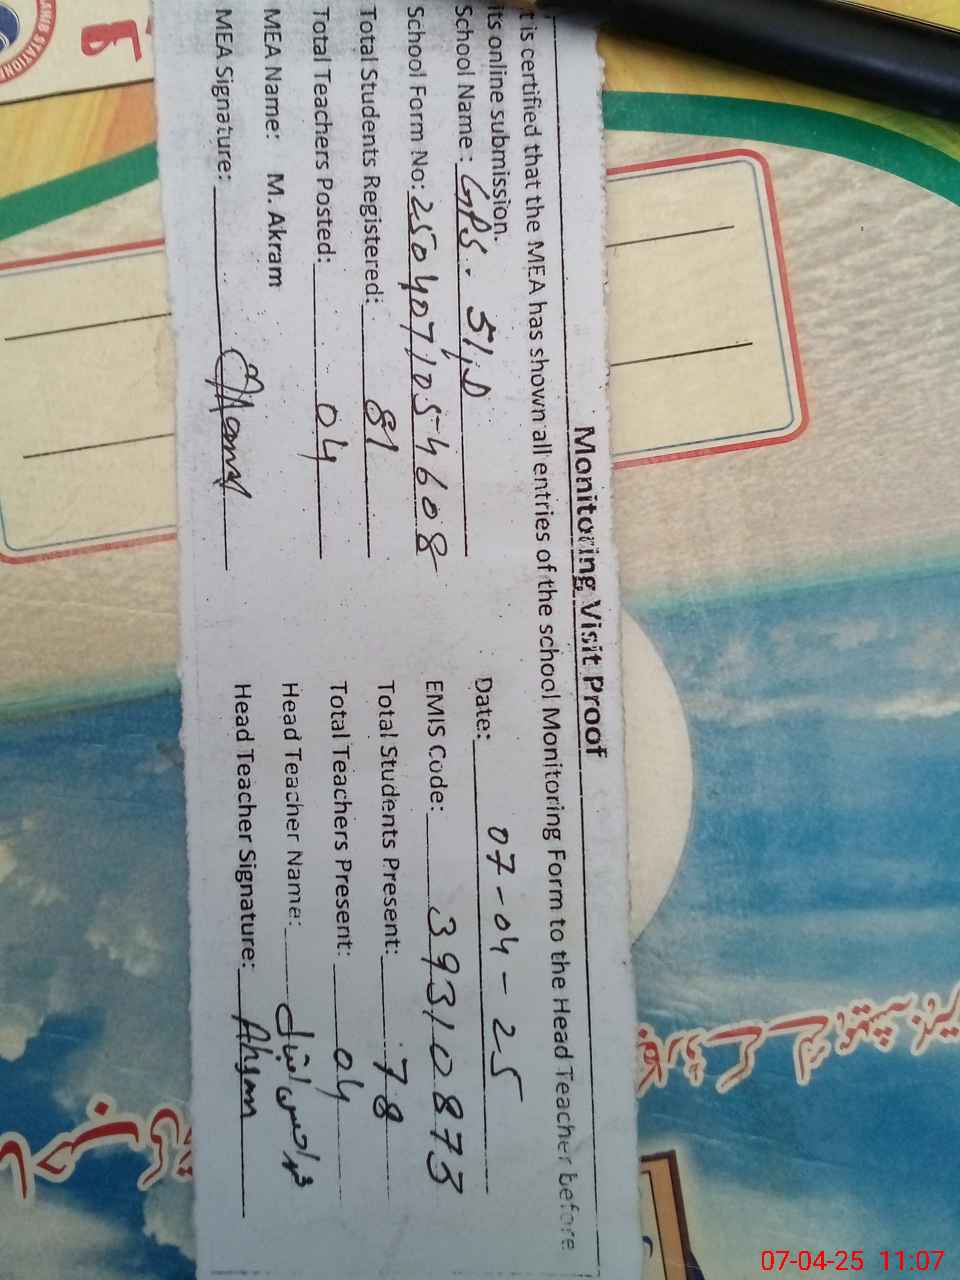 Monitoring Visit Proof
t is certified that the MEA has shown all entries of the school Monitoring Form to the Head Teacher before
its online submission.
School Name: GPS. 51/D Date: 07-04-25
School Form No: 250407105-4608 EMIS Code: 39310873
Total Students Registered: 81 Total Students Present: 78
Total Teachers Posted: 04 Total Teachers Present: 04
MEA Name: M. Akram Head Teacher Name: محمد احسن اقبال
MEA Signature: Head Teacher Signature: Ahsan
07-04-25 11:07